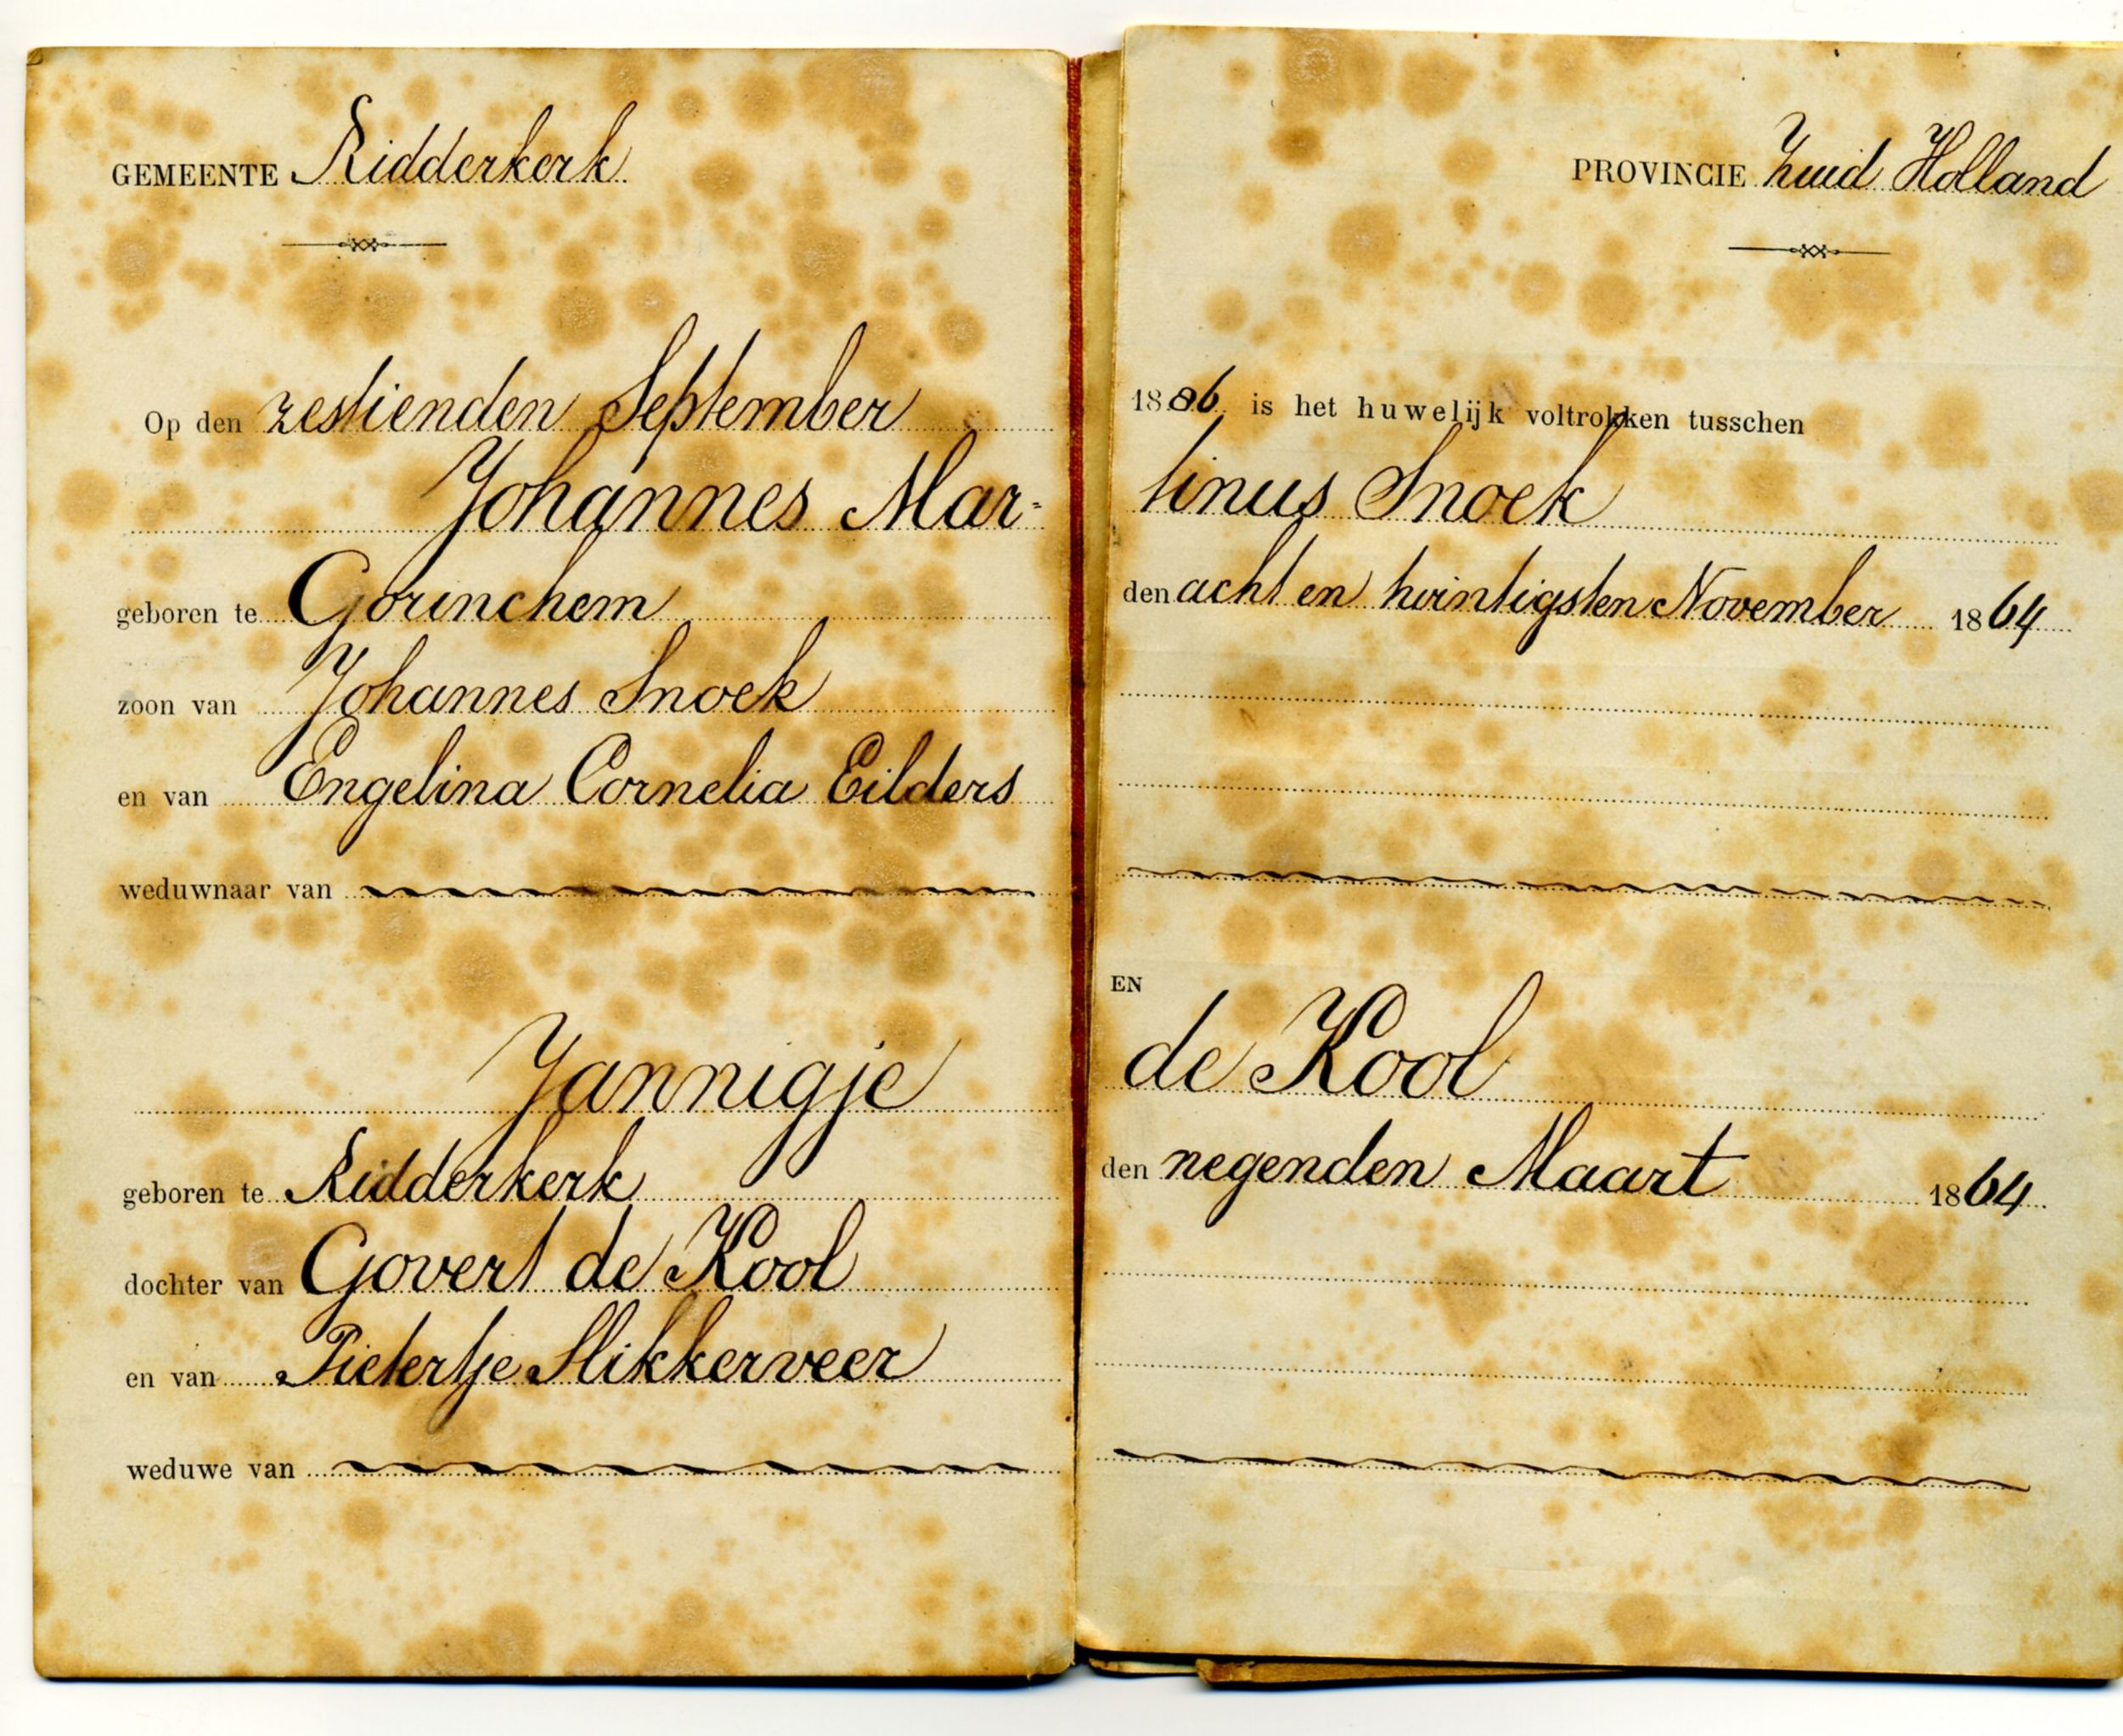 GEMEENTE Ridderkerk
Op den zestienden September
Johannes Mar-
geboren te Gorinchem
zoon van Johannes Snoek
en van Engelina Cornelia Eilders
weduwnaar van
Jannigje
geboren te Ridderkerk
dochter van Govert de Kool
en van Pietertje Slikkerveer
weduwe van
PROVINCIE Zuid Holland
1886 is het huwelijk voltrokken tusschen
tinus Snoek
den acht en twintigsten November 1864
EN
de Kool
den negenden Maart 1864